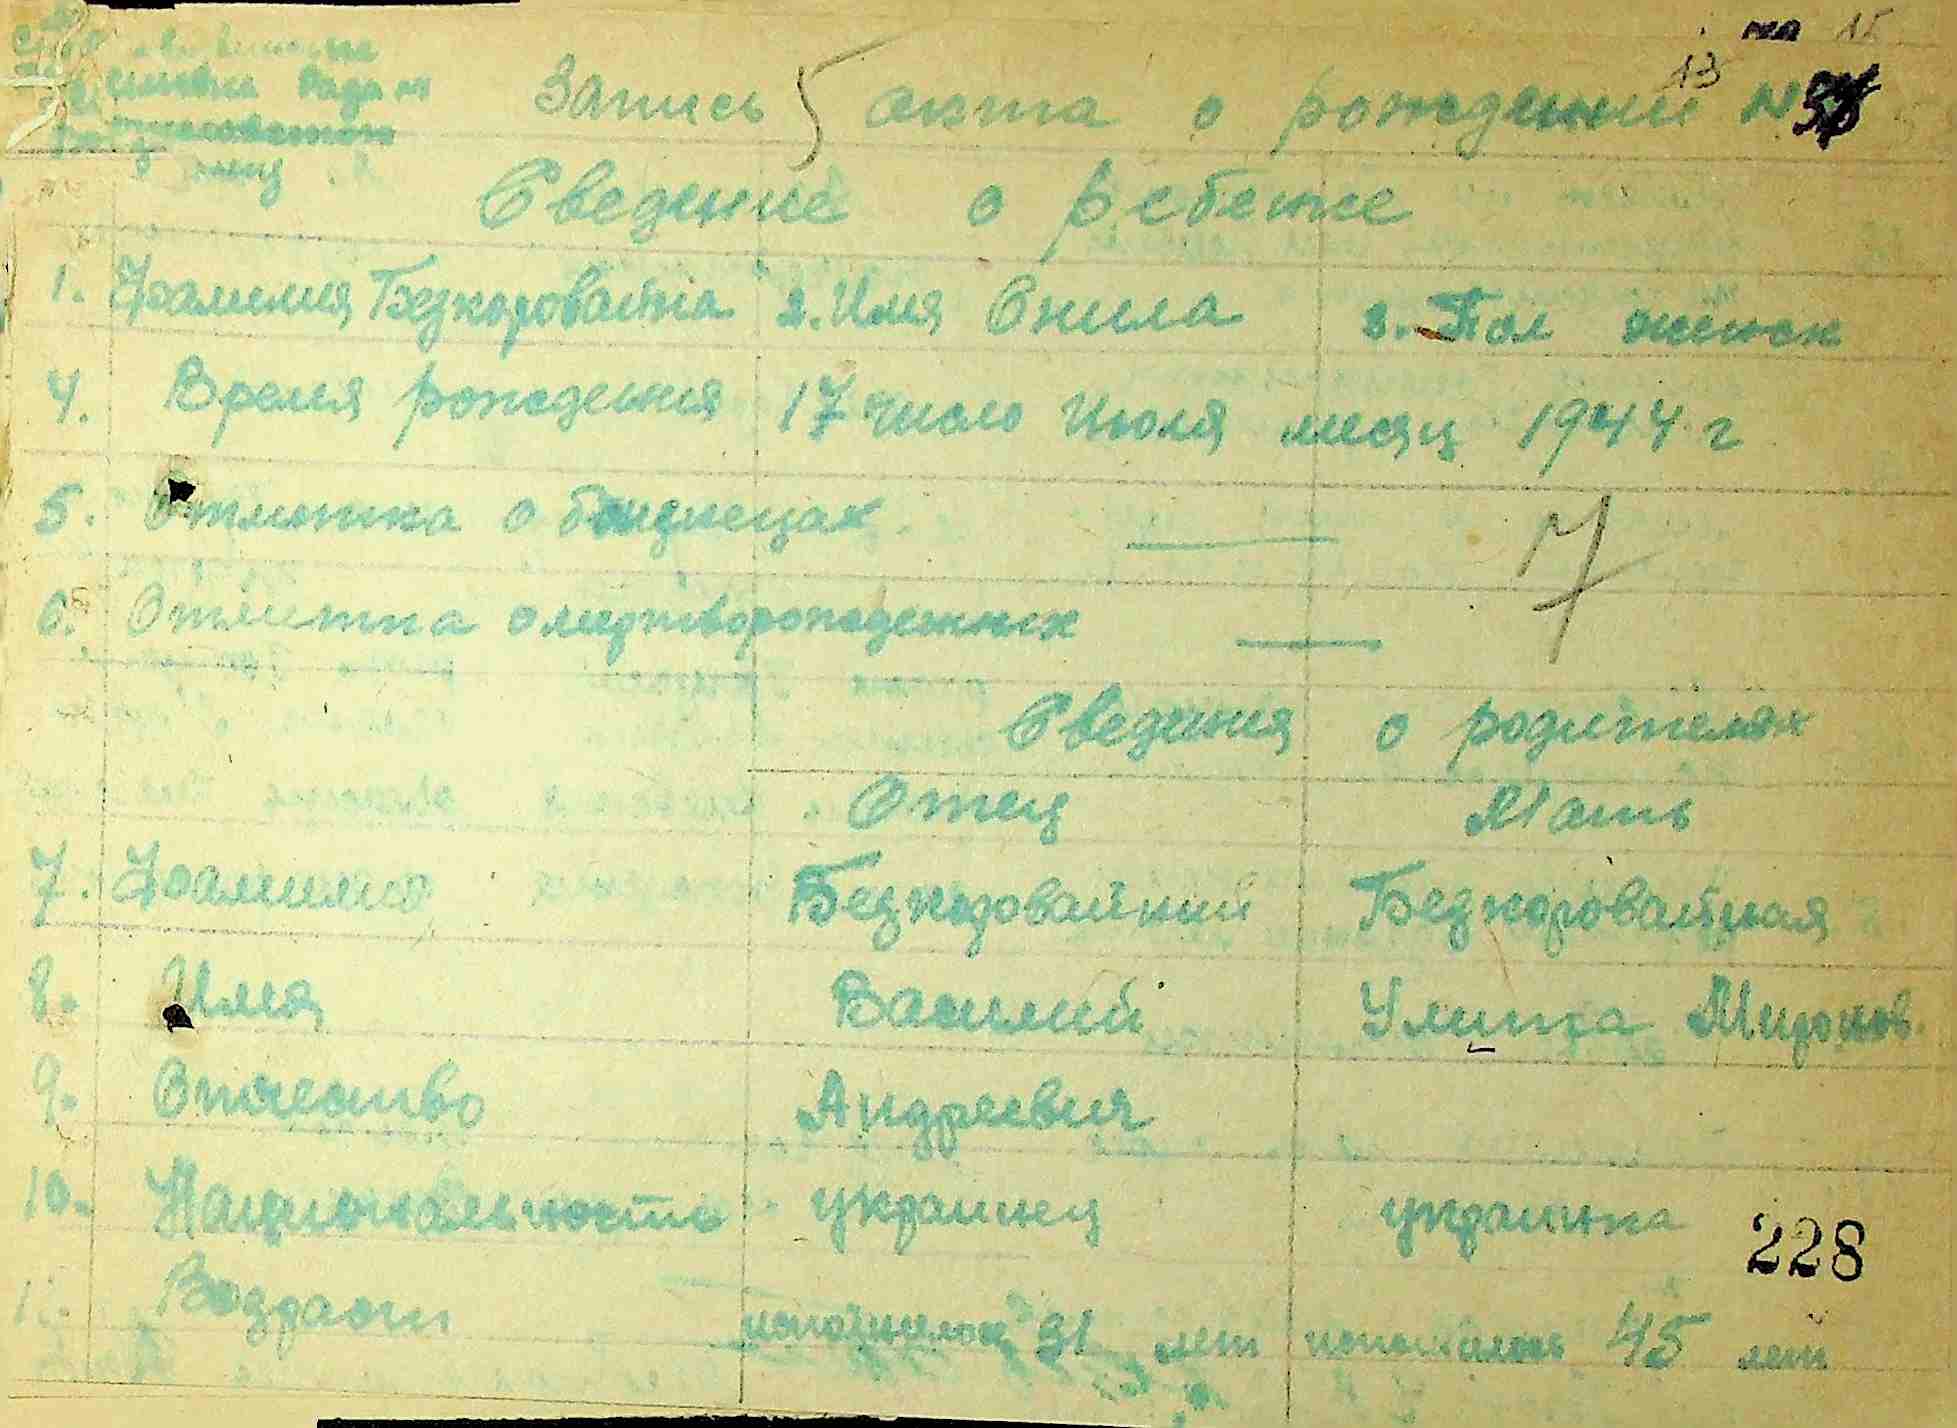 на 15
13
Запись акта о рождении №
Сведение о ребенке
1. Фамилия Безкоровайна 2. Имя Снила 3. Пол женск
4. Время рождения 17 число Июля месяц 1944 г
5. Отметка о близнецах —
7
6. Отметка о мертворожденных —
Сведения о родителях
Отец Мать
7. Фамилия Безкоровайний Безкоровайная
8. Имя Василий Улита Миронов.
9. Отчество Андреевич
10. Национальность украинец украинка
228
11. Возраст исполнилось 31 лет исполнилось 45 лет